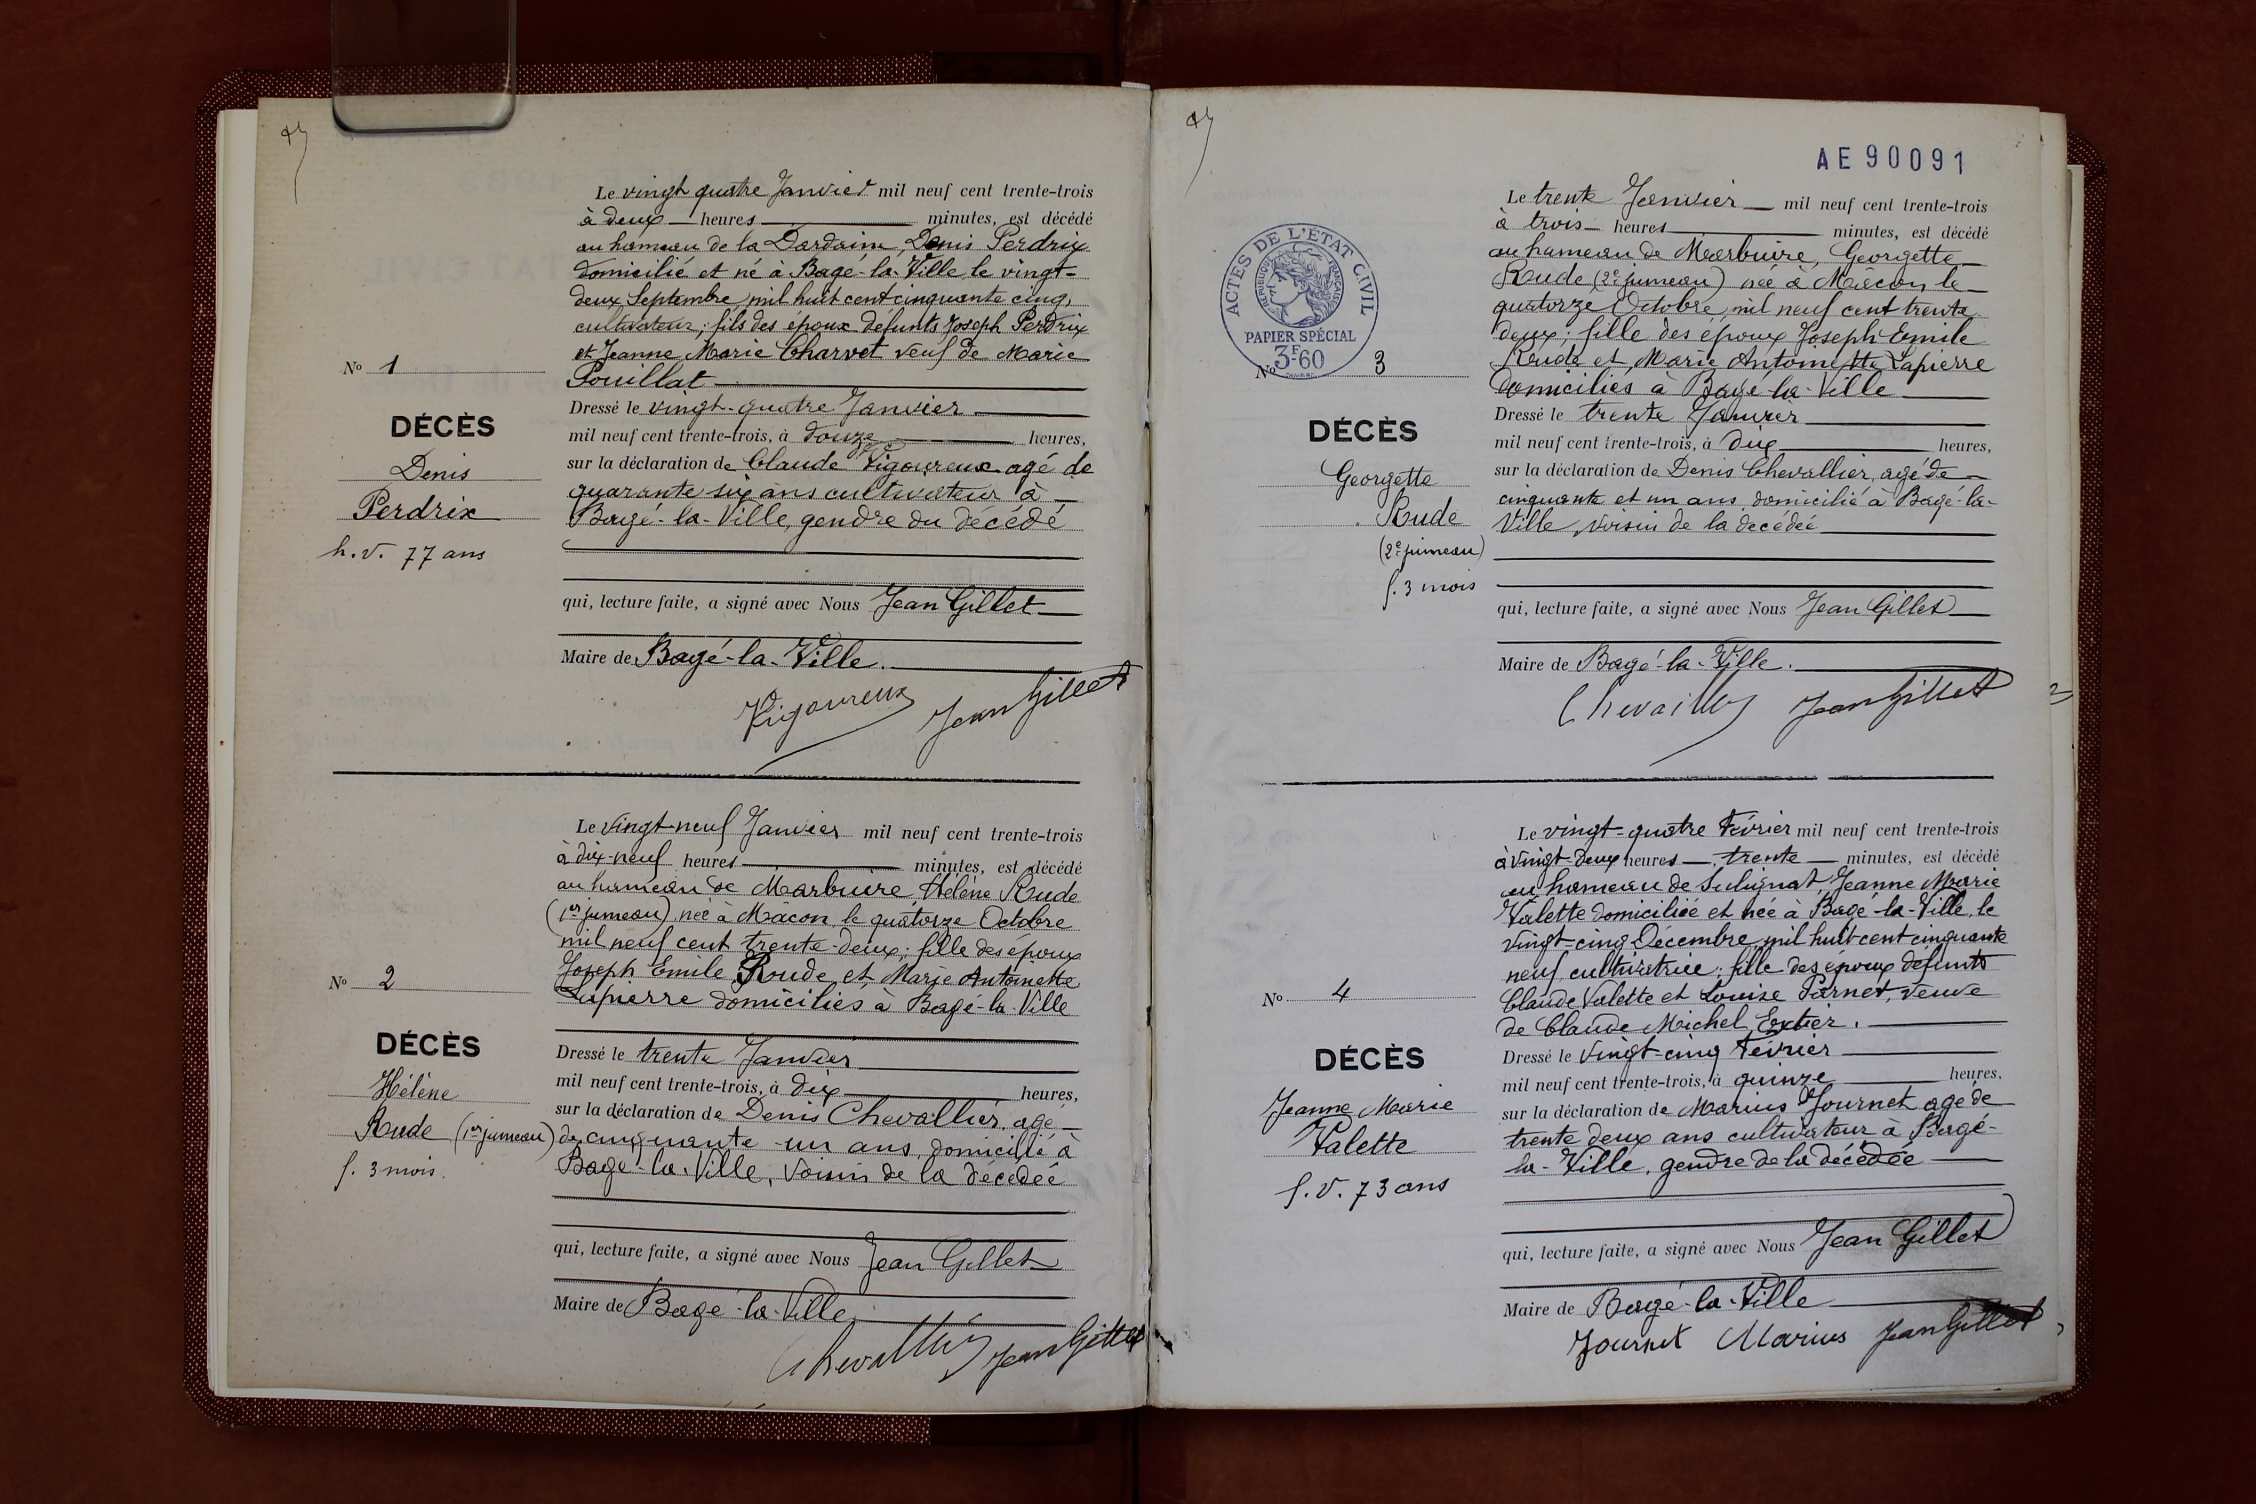 Le vingt quatre Janvier mil neuf cent trente-trois
à deux heures minutes, est décédé
au hameau de la Dardaine, Denis Perdrix
domicilié et né à Bagé-la-Ville le vingt-
deux Septembre mil huit cent cinquante cinq,
cultivateur; fils des époux défunts Joseph Perdrix
et Jeanne Marie Charvet veuf de Marie
Pouillat
No 1
DÉCÈS
Denis
Perdrix
h.v. 77 ans
Dressé le vingt-quatre Janvier
mil neuf cent trente-trois, à douze heures,
sur la déclaration de Claude Vigoureux agé de
quarante six ans cultivateur à
Bagé-la-Ville, gendre du décédé
qui, lecture faite, a signé avec Nous Jean Gillet
Maire de Bagé-la-Ville.
Vigoureux Jean Gillet
Le vingt-neuf Janvier mil neuf cent trente-trois
à dix-neuf heures minutes, est décédé
au hameau de Marbuire, Hélène Rude
(1er jumeau) née à Mâcon le quatorze Octobre
mil neuf cent trente-deux; fille des époux
Joseph Emile Roude et Marie Antoinette
Lapierre domiciliés à Bagé-la-Ville
No 2
DÉCÈS
Hélène
Rude (1er jumeau)
f. 3 mois.
Dressé le trente Janvier
mil neuf cent trente-trois, à dix heures,
sur la déclaration de Denis Chevallier, agé
de cinquante-un ans, domicilié à
Bagé-la-Ville, voisin de la décédée
qui, lecture faite, a signé avec Nous Jean Gillet
Maire de Bagé-la-Ville
Chevallier Jean Gillet
AE90091
ACTES DE L'ÉTAT CIVIL
RÉPUBLIQUE FRANÇAISE
PAPIER SPÉCIAL
3F60
Le trente Janvier mil neuf cent trente-trois
à trois heures minutes, est décédé
au hameau de Marbuire, Georgette
Rude (2e jumeau) née à Mâcon le
quatorze Octobre mil neuf cent trente
deux; fille des époux Joseph Emile
Rude et Marie Antoinette Lapierre
domiciliés à Bagé-la-Ville
No 3
DÉCÈS
Georgette
Rude
(2e jumeau)
f. 3 mois
Dressé le trente Janvier
mil neuf cent trente-trois, à dix heures,
sur la déclaration de Denis Chevallier, agé de
cinquante et un ans, domicilié à Bagé-la-
Ville, voisin de la décédée
qui, lecture faite, a signé avec Nous Jean Gillet
Maire de Bagé-la-Ville.
Chevallier Jean Gillet
Le vingt-quatre Février mil neuf cent trente-trois
à vingt-deux heures trente minutes, est décédé
au hameau de Sulignat, Jeanne Marie
Valette domiciliée et née à Bagé-la-Ville, le
vingt-cinq Décembre mil huit cent cinquante
neuf cultivatrice; fille des époux défunts
Claude Valette et Louise Parnet, veuve
de Claude Michel Extier.
No 4
DÉCÈS
Jeanne Marie
Valette
f.v. 73 ans
Dressé le vingt-cinq Février
mil neuf cent trente-trois, à quinze heures,
sur la déclaration de Marius Journet agé de
trente deux ans cultivateur à Bagé-
la-Ville, gendre de la décédée
qui, lecture faite, a signé avec Nous Jean Gillet
Maire de Bagé-la-Ville
Journet Marius Jean Gillet